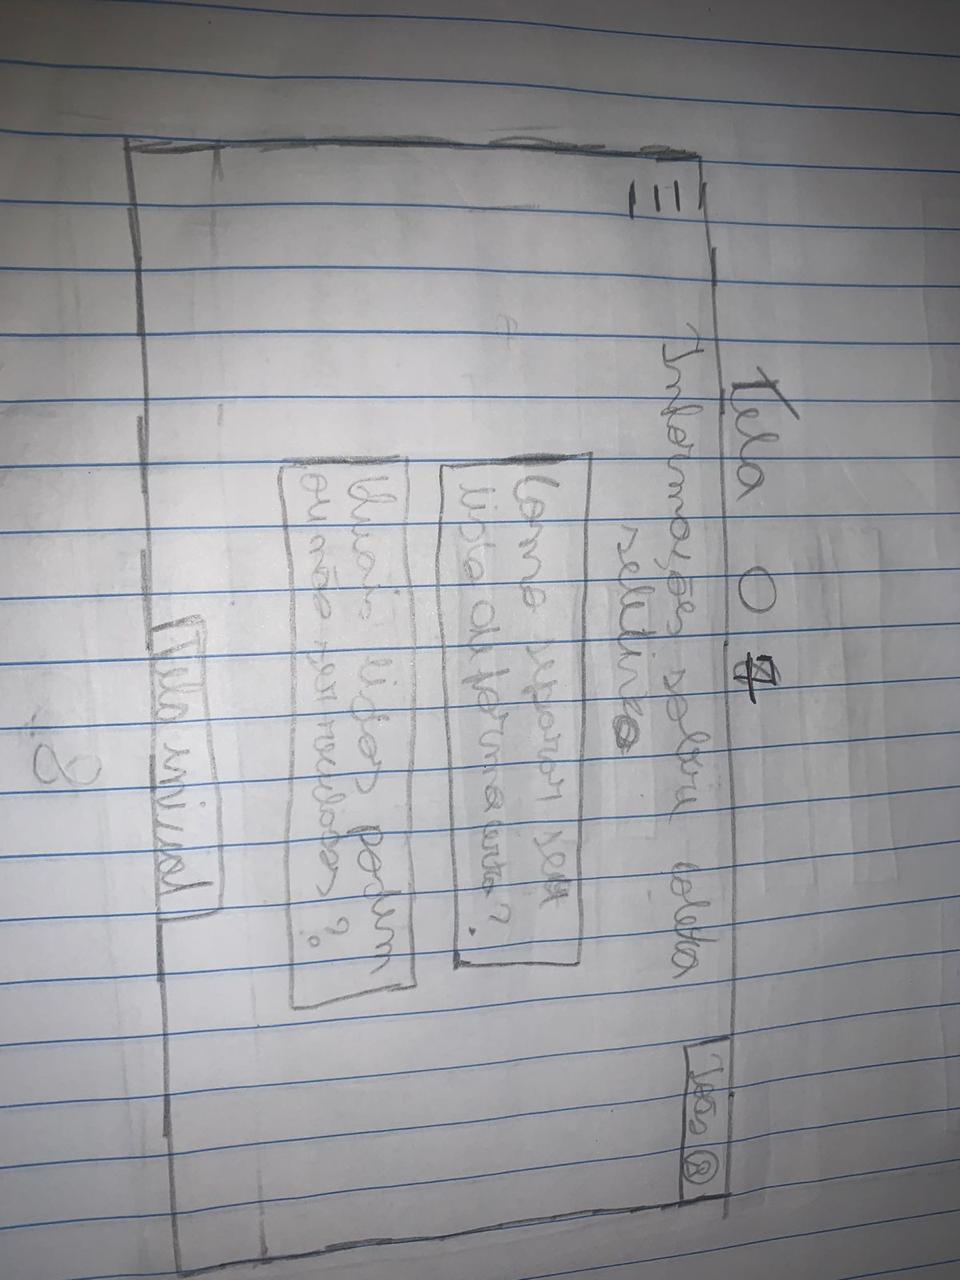 Tela 07
João
Informações sobre coleta
seletiva
Como separar seu
lixo de forma correta?
Quais lixos podem
ou não ser reciclados?
Tela inicial
8